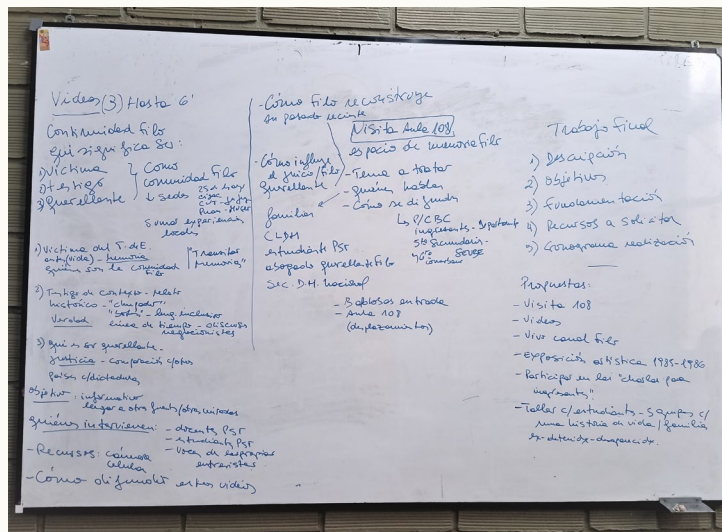 Videos (3) Hasta 6'
Comunidad Filo
qué significa ser:
1) Víctima
2) testigo
3) Querellante
Como
comunidad Filo
↓ sedes
25 de Mayo
Puan
Sumar experiencias
locales
1) Víctima del T. de E.
(vida) - memoria
quienes son la comunidad
Filo
"Transitar
Memorias"
2) Testigo de contexto - relato
histórico - "chupado"
Verdad
leng. inclusivo
línea de tiempo - discursos
negacionistas
3) qué es ser querellante -
Justicia - comparación c/otros
países c/dictaduras
Objetivo: informativo
llegar a otro /otras miradas
quiénes intervienen:
- docentes PST
- estudiantes PST
- Voces de
entrevistas
- Recursos: cámara
celular
- Cómo difundir estos videos
- Cómo Filo reconstruye
su pasado reciente
Visita Aula 108
espacio de memoria Filo
- Cómo influye
el juicio/Filo
querellante
familias
CLDH
estudiantes PST
abogado querellante Filo
Sec. D.H. nacional
- Tema a tratar
- quiénes hablan
- Cómo se difunde
↳ P/CBC
ingresantes -
5to secundaria -
SEUBE
- Baldosas entrada
- Aula 108
(desplazamientos)
Trabajo Final
1) Descripción
2) Objetivos
3) Fundamentación
4) Recursos a solicitar
5) Cronograma realización
Propuestas:
- Visita 108
- Videos
- Vivo canal Filo
- Exposición artística 1985-1986
- Participar en las "charlas para
ingresantes".
- Taller c/estudiantes - 5 grupos c/
una historia de vida / familia
ex-detenido-desaparecido.